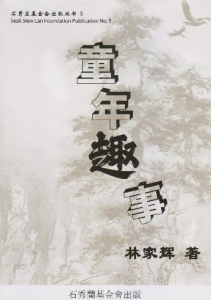 石秀兰基金会出版丛书 5
Seak Siew Lan Foundation Publication No.5
童年趣事
林家辉 著
石秀蘭基金會出版